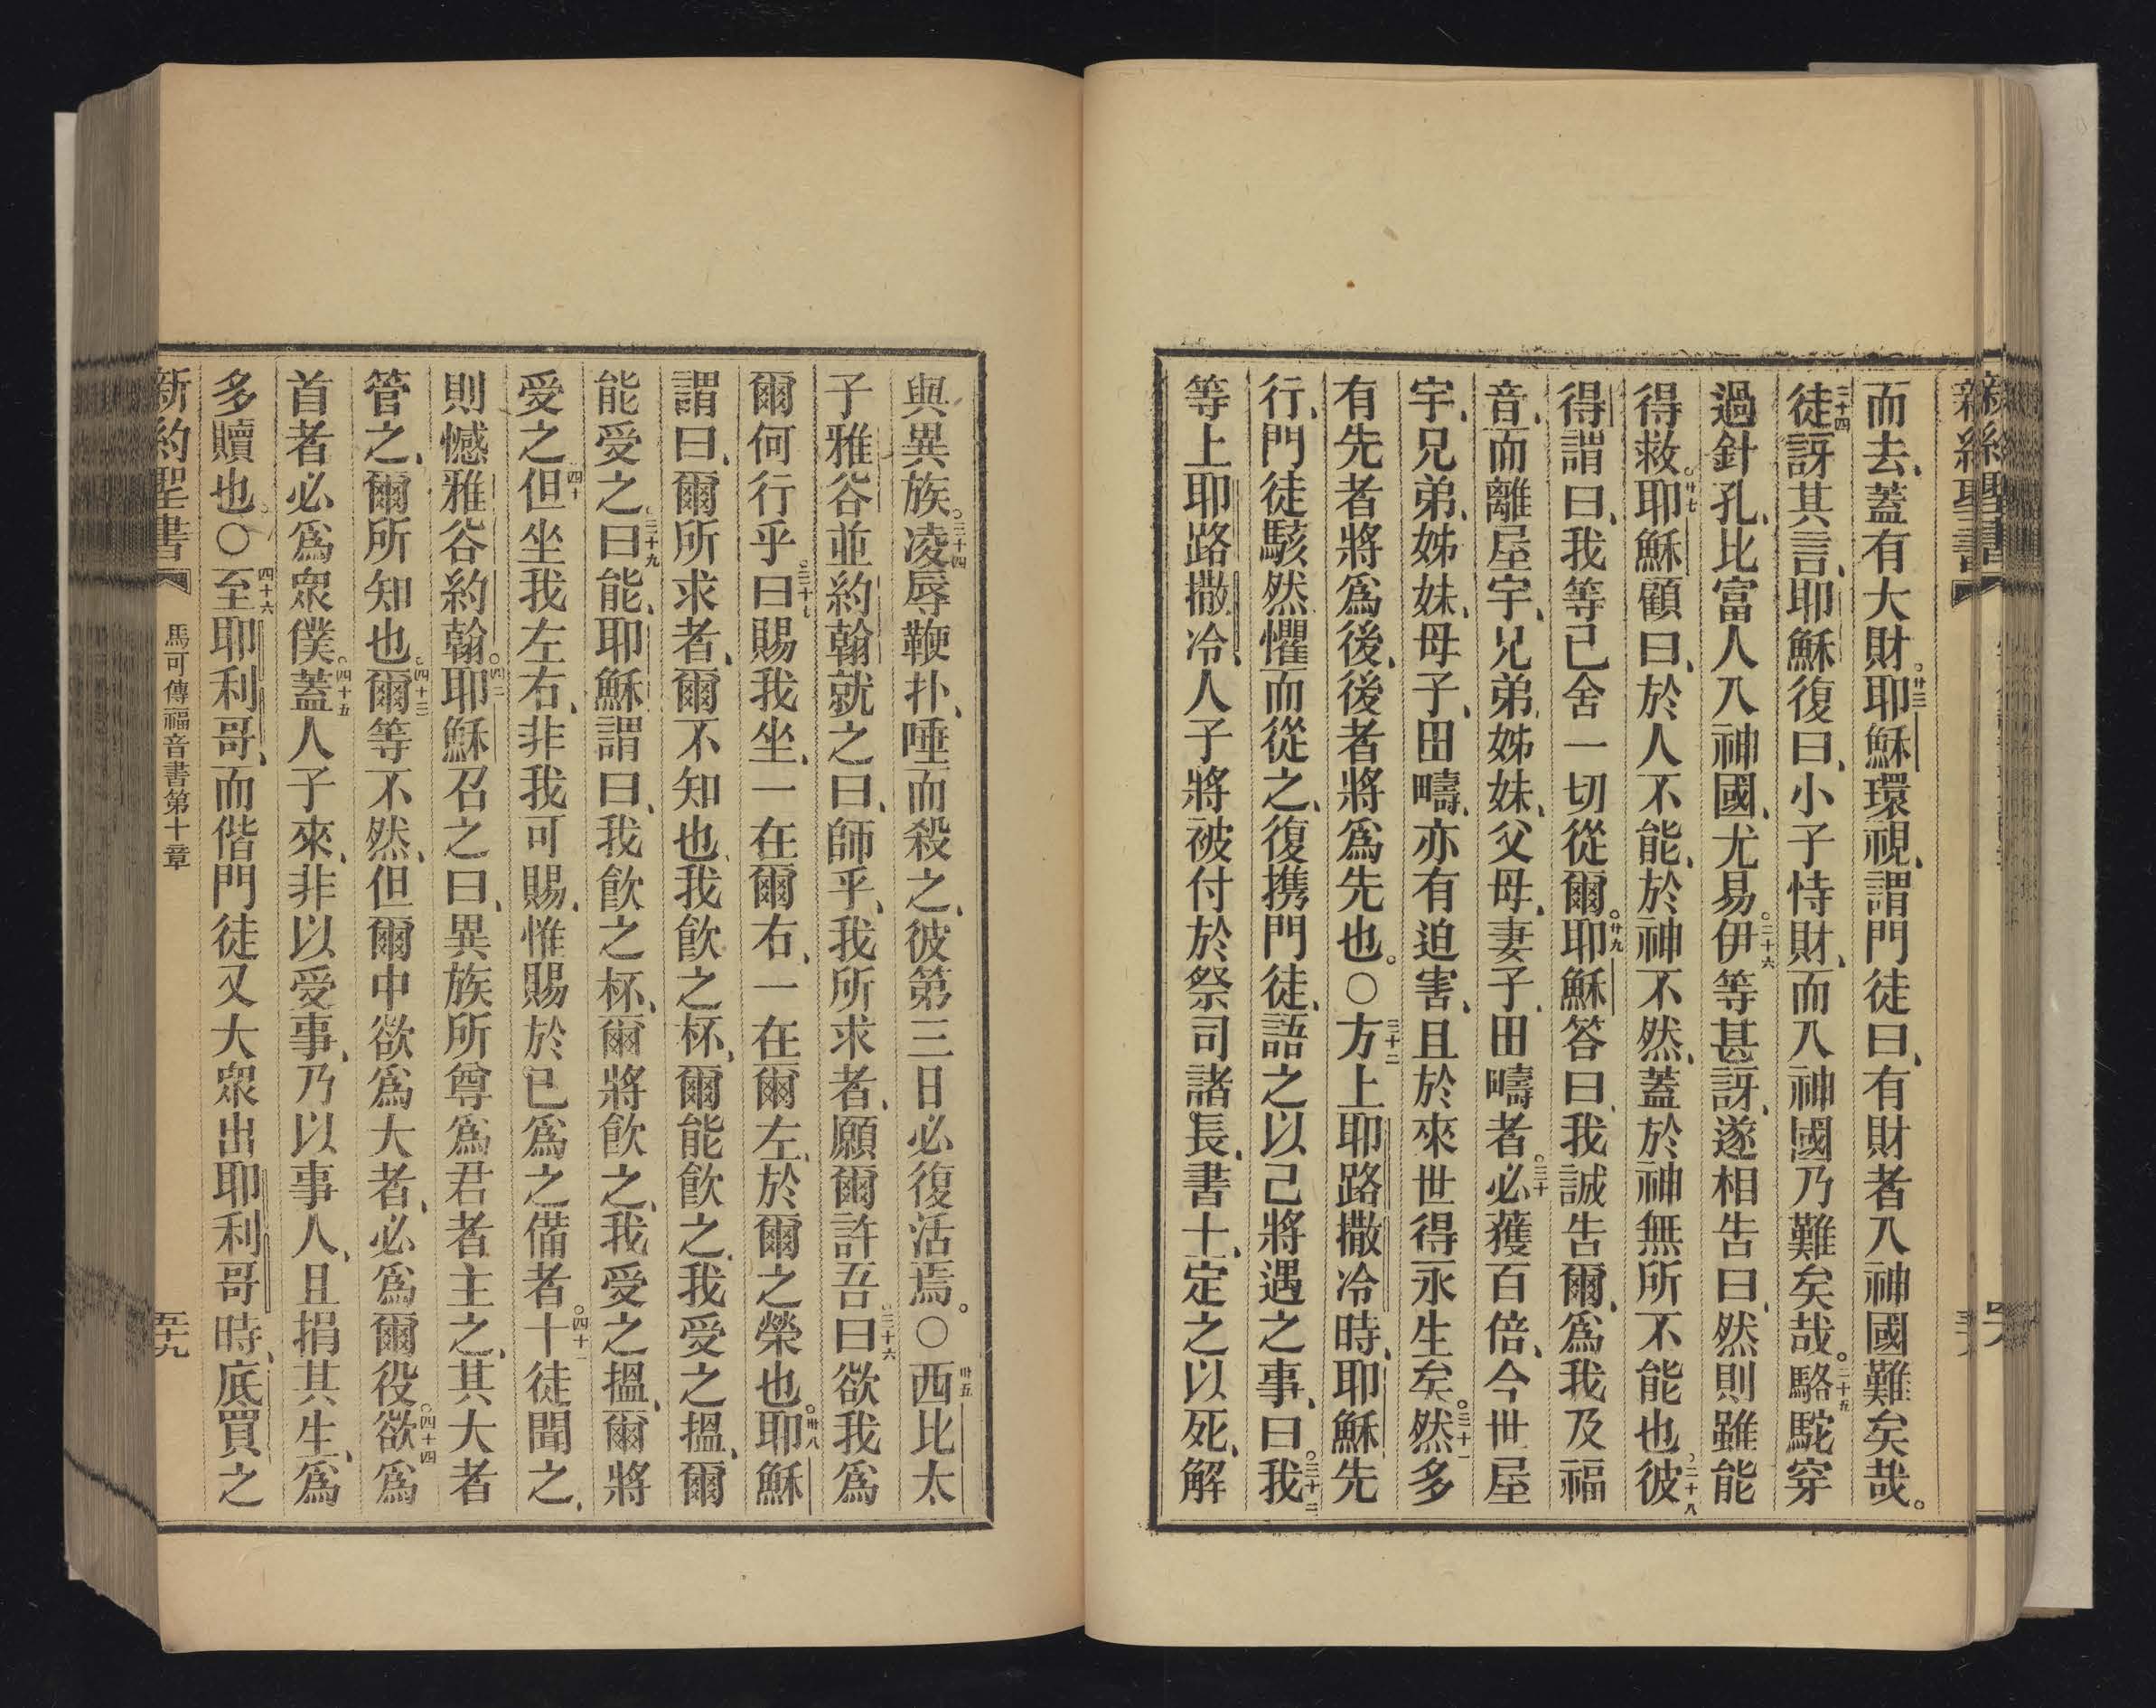 新約聖書
而去、蓋有大財。卅三耶穌環視、謂門徒曰、有財者入神國難矣哉。
二十四徒訝其言、耶穌復曰、小子恃財、而入神國乃難矣哉。二十五駱駝穿
過針孔、比富人入神國、尤易。二十六伊等甚訝、遂相告曰、然則雖能
得救。卅七耶穌顧曰、於人不能、於神不然、蓋於神無所不能也。二十八彼
得謂曰、我等已舍一切從爾。卅九耶穌答曰、我誠告爾、爲我及福
音、而離屋宇、兄弟、姊妹、父母、妻子、田疇者。三十必獲百倍、今世屋
宇、兄弟、姊妹、母子、田疇、亦有迫害、且於來世得永生矣。三十一然多
有先者將爲後、後者將爲先也。〇三十二方上耶路撒冷時、耶穌先
行、門徒駭然懼而從之、復携門徒、語之以己將遇之事、曰。三十三我
等上耶路撒冷、人子將被付於祭司諸長、書士、定之以死、解
與異族。三十四凌辱鞭扑、唾而殺之、彼第三日必復活焉。〇卅五西比太
子雅谷並約翰就之曰、師乎、我所求者、願爾許吾。三十六曰欲我爲
爾何行乎。三十七曰賜我坐、一在爾右、一在爾左、於爾之榮也。卅八耶穌
謂曰、爾所求者、爾不知也、我飲之杯、爾能飲之、我受之搵、爾
能受之。三十九曰能、耶穌謂曰、我飲之杯、爾將飲之、我受之搵、爾將
受之。四十但坐我左右、非我可賜、惟賜於已爲之備者。四十一十徒聞之、
則憾雅谷約翰。四二耶穌召之曰、異族所尊爲君者主之、其大者
管之、爾所知也。四十三爾等不然、但爾中欲爲大者、必爲爾役。四十四欲爲
首者必爲衆僕。四十五蓋人子來、非以受事、乃以事人、且捐其生、爲
多贖也。〇四十六至耶利哥、而偕門徒又大衆出耶利哥時、底買之
新約聖書 馬可傳福音書第十章 五十九